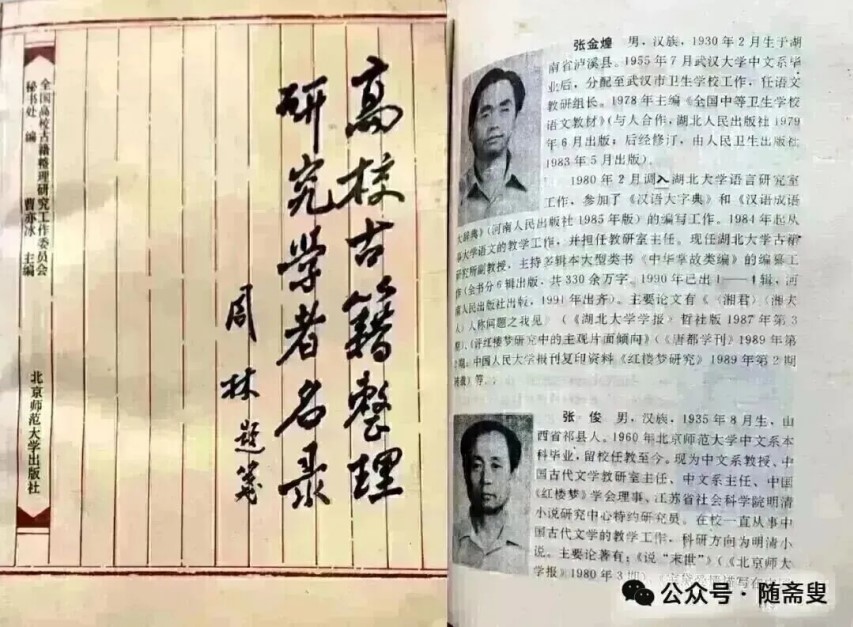 高校古籍整理
研究学者名录
周林题笺
全国高校古籍整理研究工作委员会
秘书处 编 曹亦冰 主编
北京师范大学出版社
张金煌 男，汉族，1930年2月生于湖
南省泸溪县。1955年7月武汉大学中文系毕
业后，分配至武汉市卫生学校工作，任语文
教研组长。1978年主编《全国中等卫生学校
语文教材》(与人合作，湖北人民出版社1979
年6月出版；后经修订，由人民卫生出版社
1983年5月出版)。
1980年2月调入湖北大学语言研究室
工作，参加了《汉语大字典》和《汉语成语
大辞典》(河南人民出版社1985年版)的编写工作。1984年起从
事大学语文的教学工作，并担任教研室主任。现任湖北大学古籍
研究所副教授，主持多辑本大型类书《中华掌故类编》的编纂工
作(全书分6辑出版，共330余万字。1990年已出1——辑，河
南人民出版社出版，1991年出齐)。主要论文有《〈湘君〉〈湘夫
人〉人称问题之我见》(《湖北大学学报》哲社版1987年第3
期)、《评红楼梦研究中的主观片面倾向》(《唐都学刊》1989年第
2期；中国人民大学报刊复印资料《红楼梦研究》1989年第2期
转载)等。
张 俊 男，汉族，1935年8月生，山
西省祁县人。1960年北京师范大学中文系本
科毕业，留校任教至今。现为中文系教授、中
国古代文学教研室主任、中文系主任、中国
《红楼梦》学会理事、江苏省社会科学院明清
小说研究中心特约研究员。在校一直从事中
国古代文学的教学工作，科研方向为明清小
说。主要论著有：《说“末世”》(《北京师大
学报》1980年3期)、
公众号·随斋叟